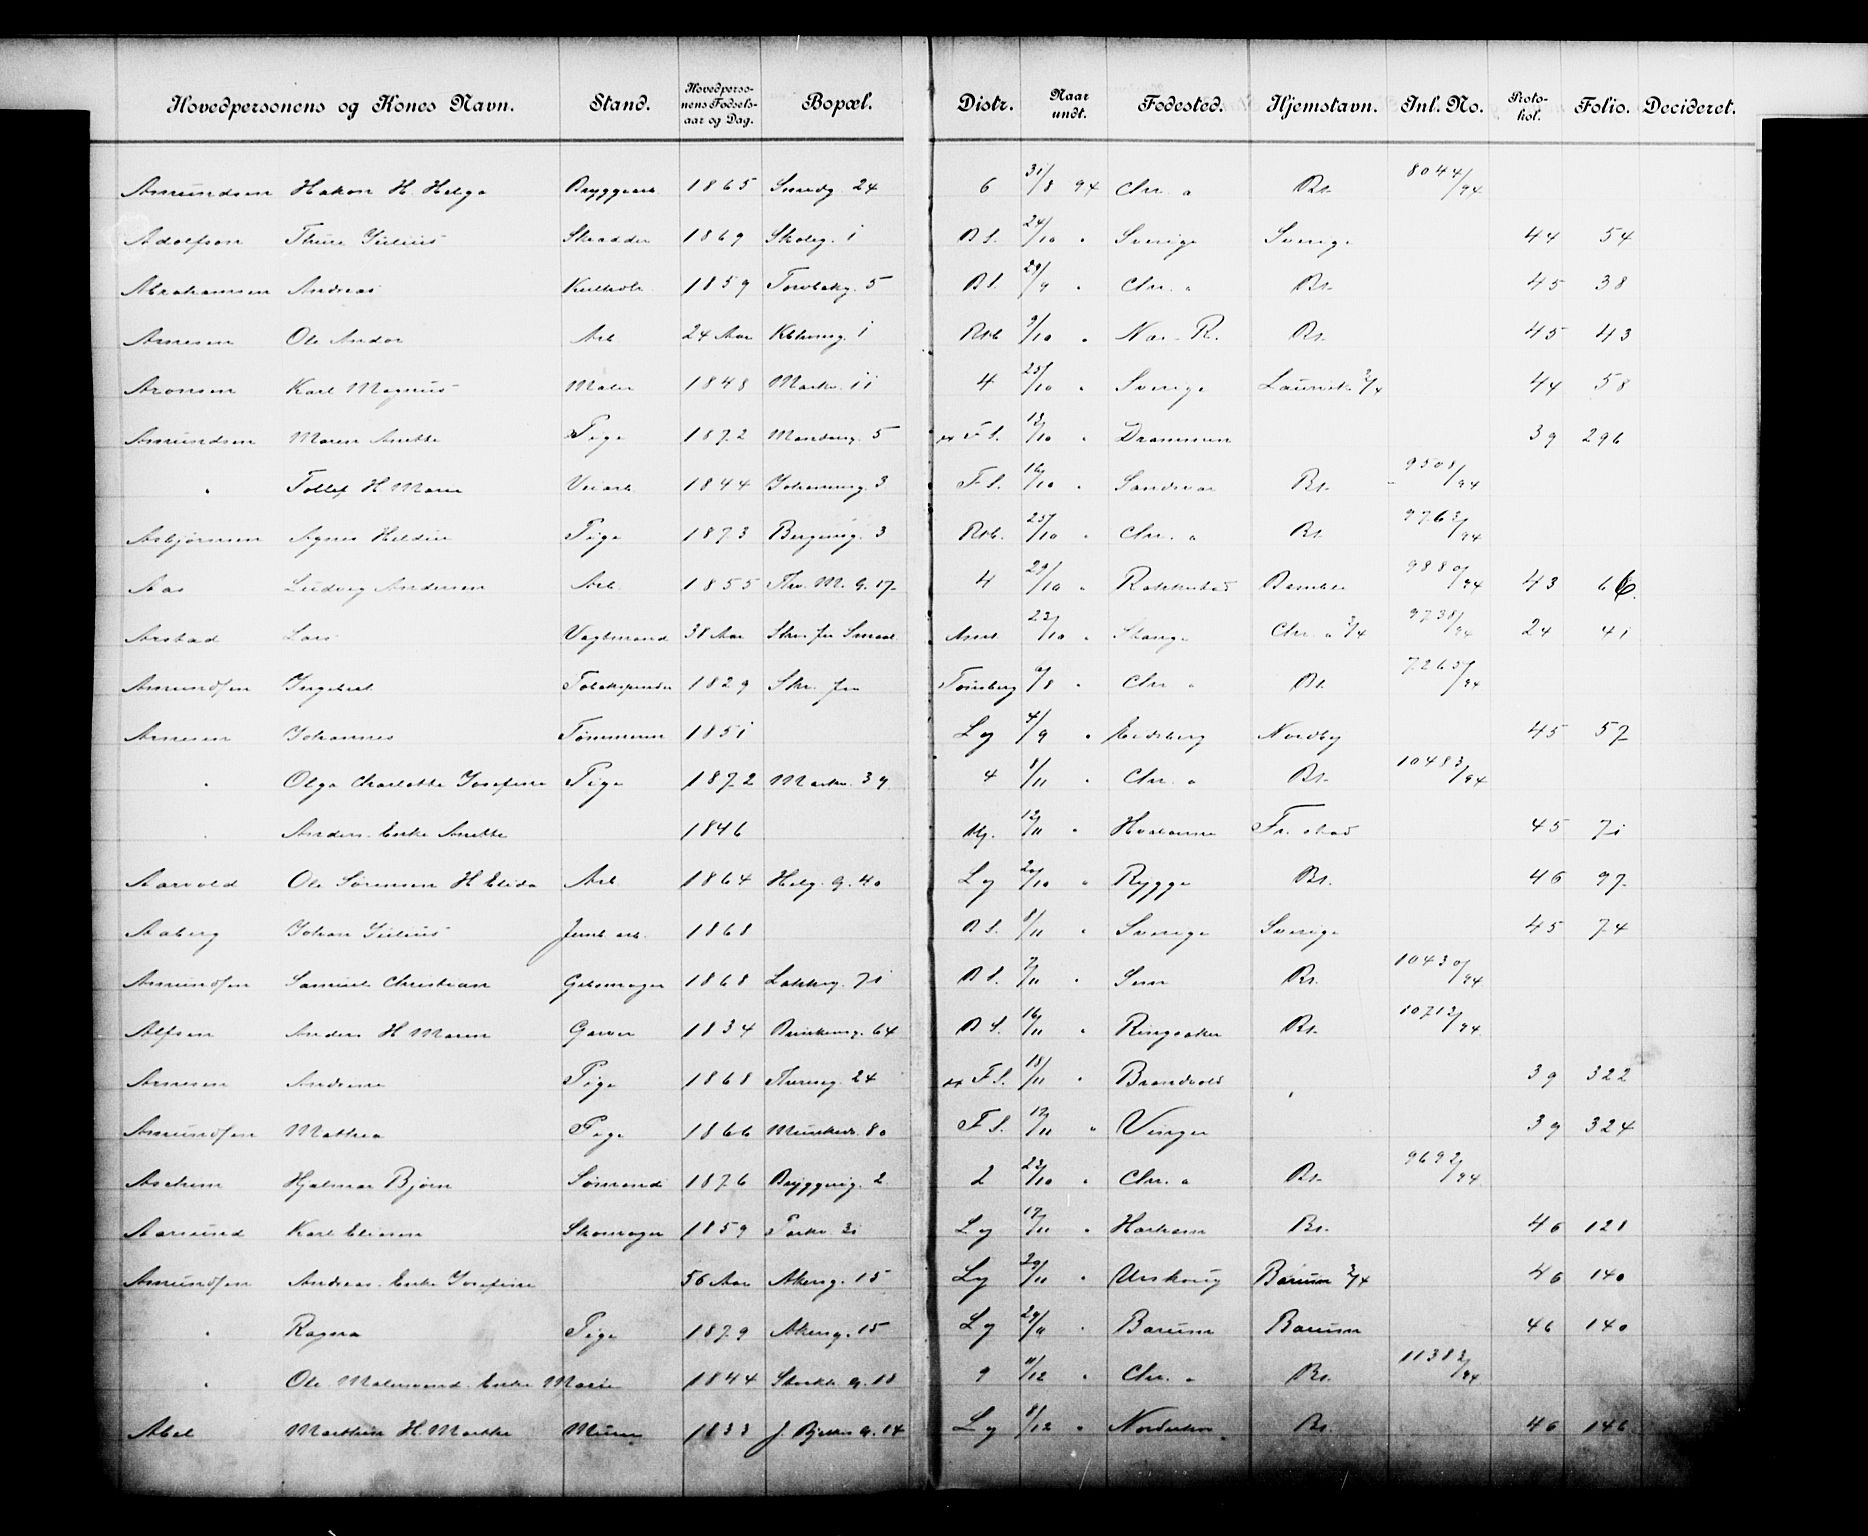 Hovedpersonens og Kones Navn. Stand. Hovedpersonens Fødselsaar og Dag. Bopæl. Distr. Naar undt. Fødested. Hjemstavn. Inl. No. Protokol. Folio. Decideret.
Amundsen Hakon H. Helga Bryggearb. 1865 Smedg. 24 6 31/8 94 Chr. a Bt. 8044/94
Adolfson Thure Julius Skrædder 1869 Skoleg. 1 B S. 24/10 " Sverige Sverige 44 54
Abrahamsen Andreas 1859 5 B S. 29/9 " Chr. a Bt. 45 38
Arnesen Ole Andor Arb. 24 Aar 1 9/10 " Nes. R. Bt. 45 43
Aronsen Karl Magnus Maler 1848 Markv. 11 4 25/10 " Sverige 2/4 44 58
Amundsen Maren Anette Pige 1872 5 F S. 13/10 " Drammen 39 296
" Tollef H. Maren Veiarb. 1844 3 F S. 16/10 " Sandsvær Bt. 9508/94
Asbjørnsen Agnes Pige 1873 Bergsvg. 3 25/10 " Chr. a Bt. 9763/94
Aas Ludvig Andersen Arb. 1855 Thv. M. g. 17 4 29/10 " Rakkestad Bamble 9880/94 43 66
Aarstad Lars Vagtmand 38 Aar 22/10 " Stange Chr. a 3/4 9738/94 24 41
Amundsen Ingebret 1829 Tønsberg 6/8 " Chr. a Bt. 7265/94
Arnesen Johannes Tømmerm 1851 L g 4/9 " Eidsberg Nordby 45 57
" Olga Charlotte Josefine Pige 1872 Markv. 39 4 1/11 " Chr. a Bt. 10483/94
" Anders. Enke Anette 1846 12/11 " Fr. stad 45 71
Aarvold Ole Sørensen H. Elida Arb. 1864 Helg. g. 40 L g 20/10 " Rygge Bt. 46 97
Aaberg Johan Julius Jernb. arb. 1868 B S. 8/11 " Sverige Sverige 45 74
Amundsen Samuel Christian 1868 Lakkeg. 71 B S. 7/11 " Sem Bt. 10430/94
Alfsen Anders H. Maren Garver 1834 64 B S. 16/11 " Ringsaker Bt. 10712/94
Arnesen Andrine Pige 1868 Thereseg. 24 F S. 18/11 " Brandvold 39 322
Amundsen Mathea Pige 1866 Munkedv. 80 F S. 19/11 " Vinger 39 324
Aschim Hjalmar Bjørn Sømand 1876 Bryggerig. 2 2 22/10 " Chr. a Bt. 9692/94
Aamund Karl Eliasen Skomager 1859 Parkv. L g 17/11 " Bt. 46 121
Amundsen Andreas. Enke Josefine 56 Aar Akersg. 15 L g 29/11 " Urskoug Bærum 2/4 46 140
" Ragna Pige 1879 Akersg. 15 L g 29/11 " Bærum Bærum 46 140
" Ole Enke Marie 1844 Storkk. g. 18 9 11/12 " Chr. a Bt. 11382/94
Abel Marthin H. Marthe Murer 1833 J. Bjelkes g. 14 L g 8/12 " Norderhov Bt. 46 146